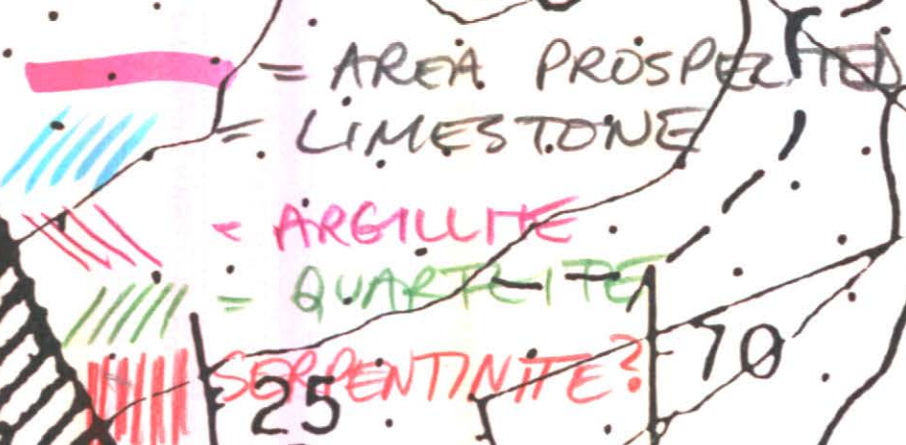 = AREA PROSPECTED
= LIMESTONE
= ARGILLITE
= QUARTZITE
SERPENTINITE?
70
25